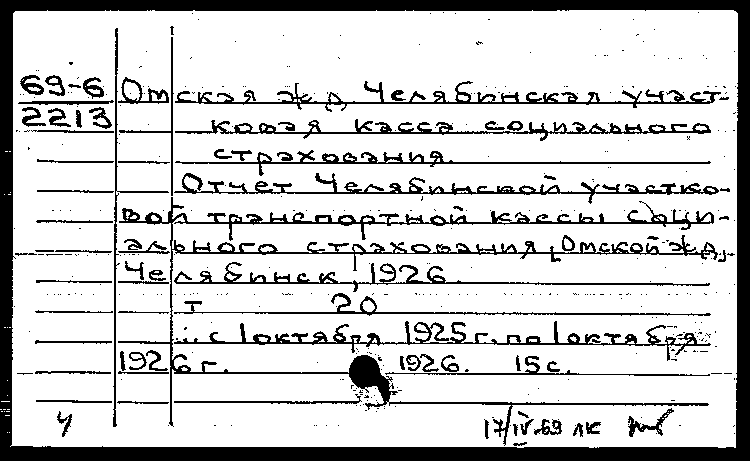 69-6 Омская ж.д. Челябинская участ-
2213 ковая касса социального
страхования.
Отчет Челябинской участко-
вой транспортной кассы соци-
ального страхования [Омской ж.д.].
Челябинск, 1926.
т 20
... с 1 октября 1925 г. по 1 октября
1926 г. 1926. 15 с.
Ч 17/IV-69 лк